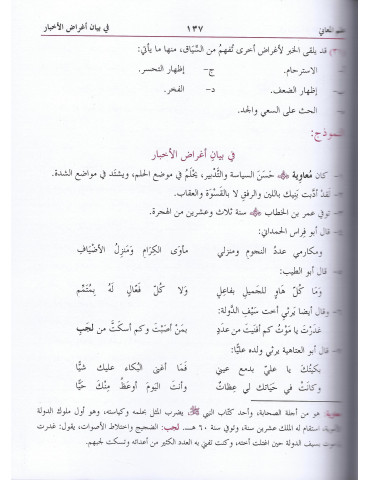 علم المعاني ١٣٧ في بيان أغراض الأخبار
(٣) قد يلقى الخبر لأغراض أخرى تُفهم من السِّيَاق، منها ما يأتي:
الاسترحام. ج- إظهار التحسر.
إظهار الضعف. د- الفخر.
الحث على السعي والجد.
النموذج:
في بيان أغراض الأخبار
كان مُعاوِية حَسَنَ السياسة والتَّدْبير، يحْلُمُ في موضع الحلم، ويشتد في مواضع الشدة.
لَقدْ أدَّبت بَنِيك باللين والرفق لا بالقَسْوَة والعقاب.
توفي عمر بن الخطاب سنة ثلاث وعشرين من الهجرة.
قال أبو فِراس الحمداني:
ومكارمي عددُ النجوم ومنزلي مأوى الكِرَامِ ومَنْزِلُ الأضْيَافِ
قال أبو الطيب:
وَمَا كُلُّ هَاوٍ للجَميلِ بفاعِلٍ وَلا كُلُّ فَعَّالٍ لَهُ بِمُتَمِّمِ
وقال أيضا يَرْثي أخت سَيْفِ الدَّوْلة:
غدَرْتَ يا مَوْتُ كم أفنَيتَ من عددٍ بمَنْ أصَبْتَ وكم أسكَتَّ من لَجَبِ
قال أبو العتاهية يرثي ولده عليًّا:
بكيتُكَ يا عليّ بدمع عيني فَمَا أغنى البُكاء عليك شيًّا
وكانَتْ في حَيَاتك لي عِظَاتٌ وأنتَ اليَومَ أوعَظُ مِنْكَ حَيًّا
معاوية: هو من أجلة الصحابة، وأحد كتّاب النبي، يضرب المثل بحلمه وكياسته، وهو أول ملوك الدولة
الأموية، استقام له الملك عشرين سنة، وتوفي سنة ٦٠ هـ. لجب: الضجيج واختلاط الأصوات، يقول: غدرت
بسيف الدولة حين اختلت أخته، وكنت تفني به العدد الكثير من أعدائه وتسكت لجبهم.